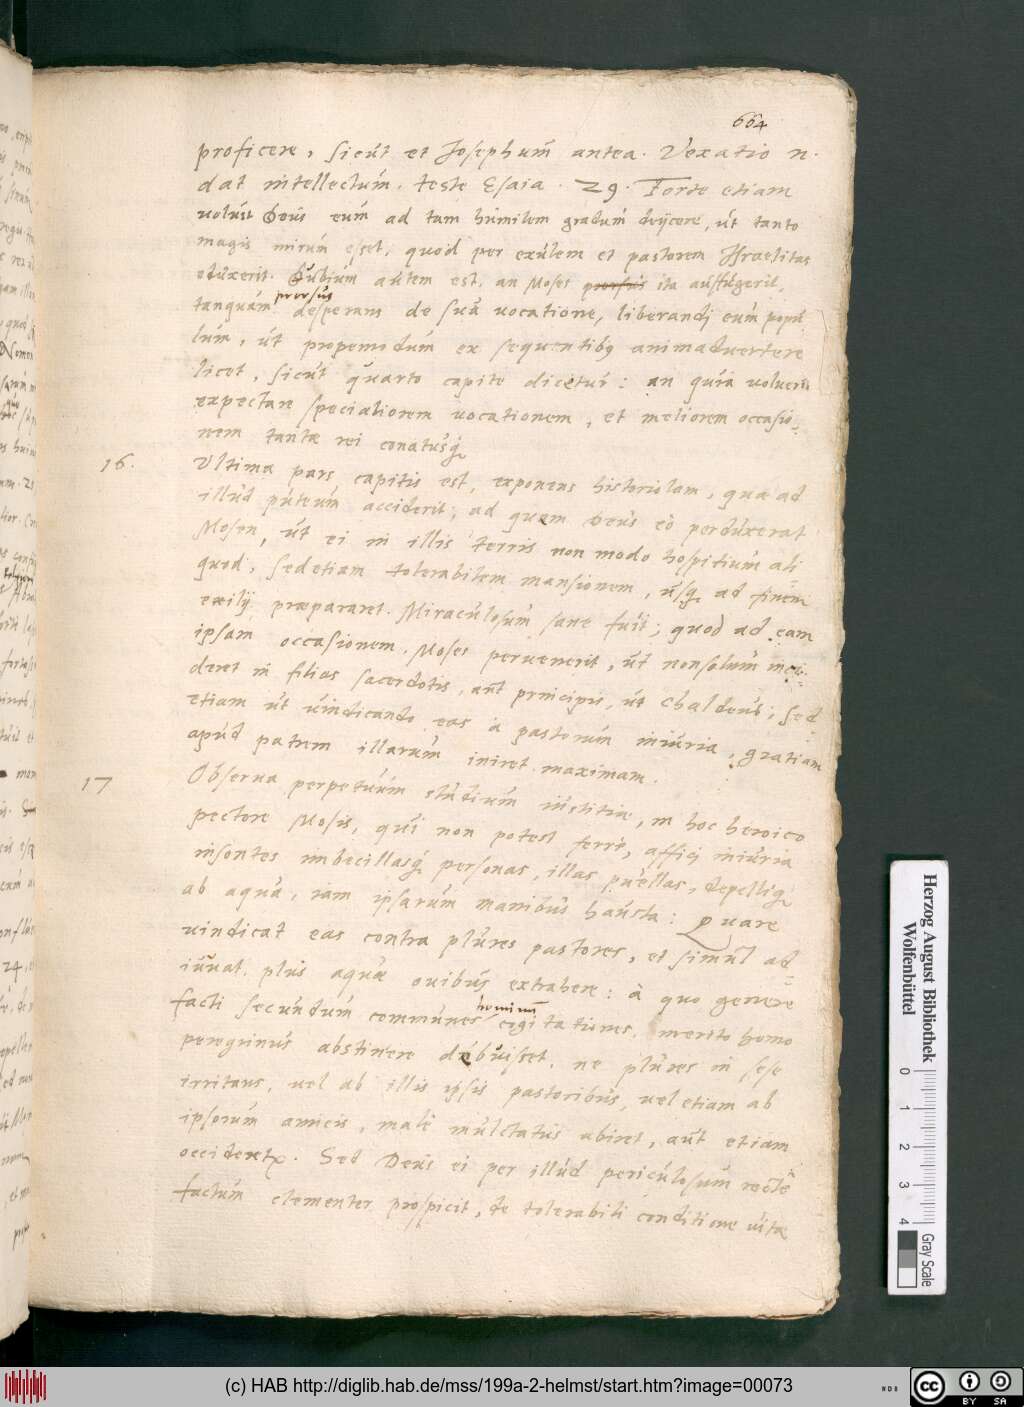 664
proficere, sicut et Josephum antea. Vexatio n.
dat intellectum, teste Esaia. 29. Forte etiam
voluit Deus eum ad tam humilem gradum deijcere, ut tanto
magis mirum esset, quod per exulem et pastorem Israelitas
eduxerit. Dubium autem est, an Moses prorsus ita aufugerit,
prorsus
tanquam desperans de sua vocatione, liberandj eum popu-
lum, ut propemodum ex sequentibus animadvertere
licet, sicut quarto capite dicetur: an quia voluerit
expectare specialiorem vocationem, et meliorem occasio-
nem tantae rei conatusq́
16. Ultima pars capitis est, exponens historiolam, qua ad
illud puteum acciderit; ad quem Deus eò perduxerat
Mosen, ut ei in illis terris non modo hospitium ali
quod, sed etiam tolerabilem mansionem, usq́ ad finem
exilij praepararet. Miraculosum sane fuit; quod ad eam
ipsam occasionem, Moses pervenerit, ut non solum inci-
deret in filias sacerdotis, aut principis, ut Chaldeus; sed
etiam ut vindicando eas à pastorum iniuria, gratiam
apud patrem illarum iniret maximam.
17 Observa perpetuum studium iustitiae, in hoc heroico
pectore Mosis, qui non potest ferre, affici iniuria
insontes imbecillasq́ personas, illas puellas, depelliq́
ab aqua, iam ipsarum manibus hausta: Quare
vindicat eas contra plures pastores, et simul ad-
iuvat, plus aquae ovibus extrahere: à quo genere
hominum
facti secundum communes cogitationes, merito homo
peregrinus abstinere debuisset, ne plures in sese
irritans, vel ab illis ipsis pastoribus, vel etiam ab
ipsorum amicis, malè mulctatus abiret, aut etiam
occideretur. Sed Deus ei per illud periculosum rectè
factum clementer prospicit, de tolerabili conditione vitae
Herzog August Bibliothek
Wolfenbüttel
0 1 2 3 4
Gray Scale
(c) HAB http://diglib.hab.de/mss/199a-2-helmst/start.htm?image=00073
cc BY SA